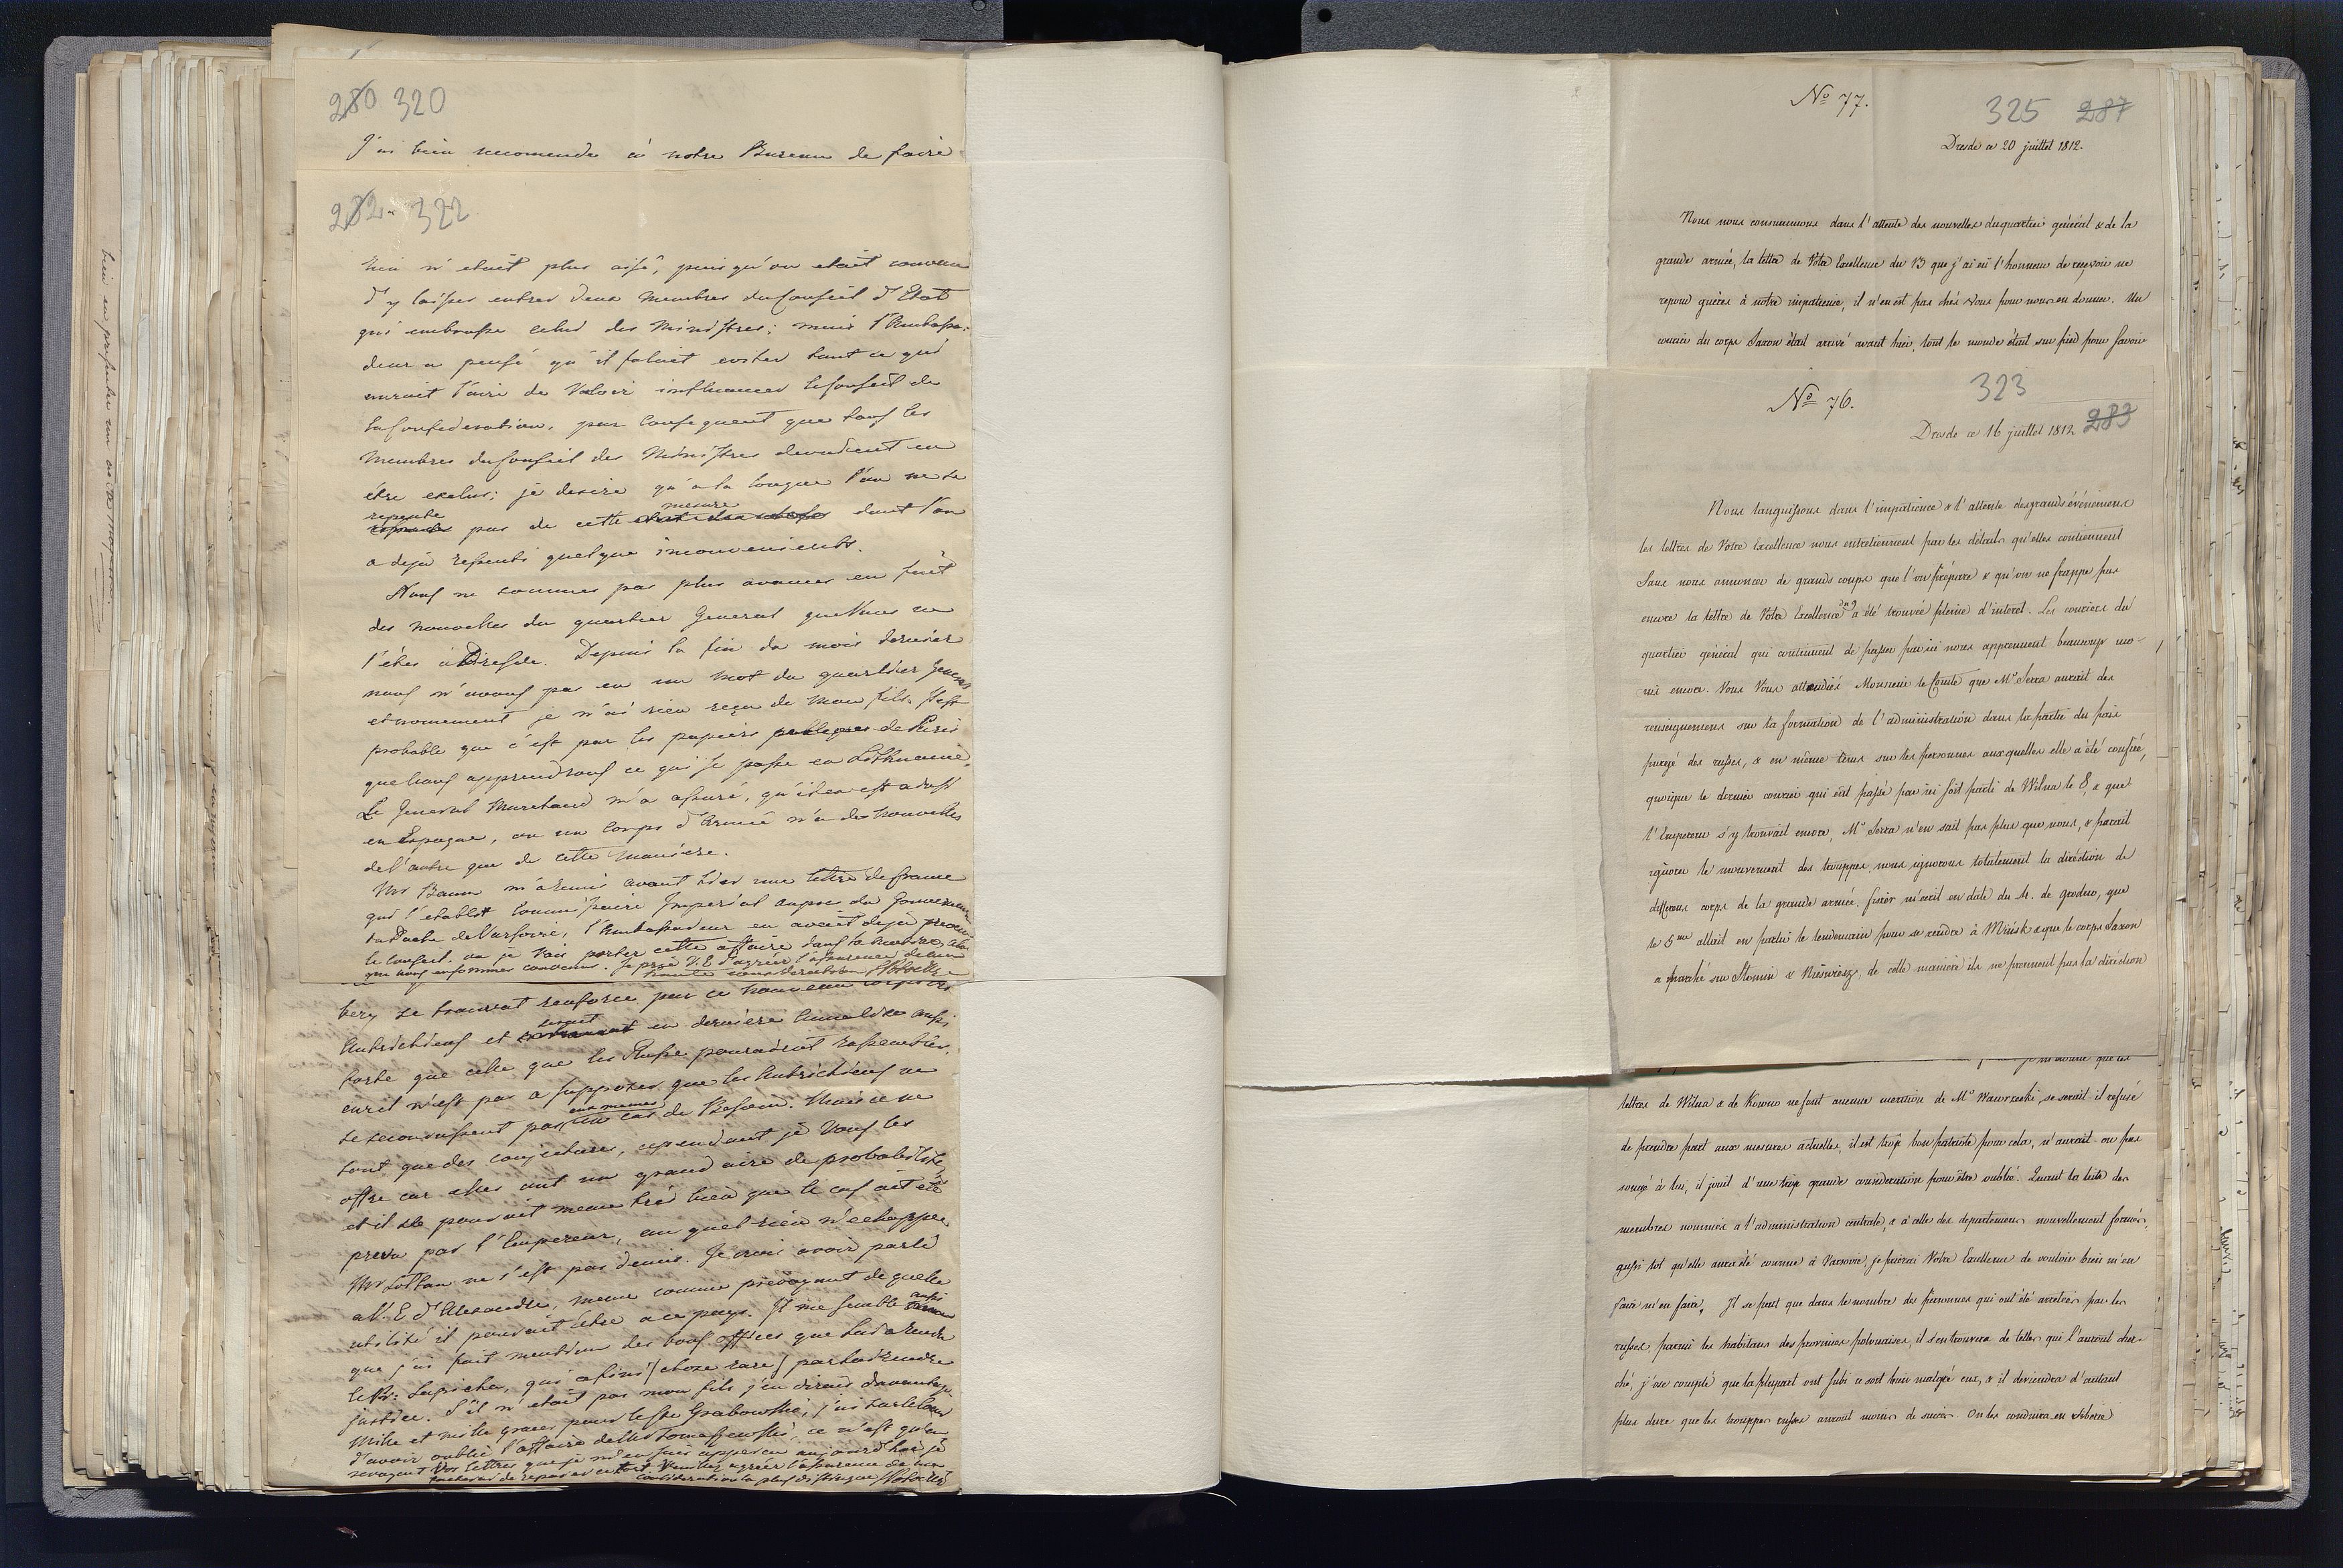 280 320
J'ai bien recomendé à notre Bureau de faire
282 322
rien n'etoit plus aisé, puis qu'on etoit convenu
d'y laisser entrer deux membres du Conseil d'Etat
qui embrasse celui des Ministres; mais l'Ambassa-
deur a pensé qu'il faloit eviter tout ce qui
auroit l'aire de Valoir influencer le Conseil de
la Confederation, par consequent que tous les
Membres du Conseil des Ministres devoient en
être exclus; je desire qu'a la longue l'on ne se
repente pas de cette mesure dont l'on
a deja ressenti quelque inconvenients.
Nous ne sommes pas plus avancés en fait
des nouvelles du quartier General que Vous ne
l'êtes à Dresde. Depuis la fin du mois dernier
nous n'avons pas eu un mot du quartier General
et nomement je n'ai rien reçu de mon fils. Il est
probable que c'est par les papiers publiques de Paris
que nous apprendrons ce qui se passe en Lithuanie.
Le General Marchand m'a assuré, qu'il en est aussi
en Espagne, ou un corps d'Armée n'a de nouvelles
de l'autre que de cette maniere.
Mr Baum m'a remis avant hier une lettre de france
qui l'etablit Commissaire Imperial aupres du Gouvernement
du Duché de Varsovie, l'Ambassadeur en avoit deja prevenu
le Conseil. ou je vais porter cette affaire dans la
que nous en sommes convenus. Je prie V. E. d'agréer l'assurance de ma
haute consideration
se trouvat renforcé par ce nouveau corps des
Autrichiens et en derniere Annalise aussi
forte que celle que les Russe pouroient rassembler,
car il n'est pas a supposer que les Autrichiens ne
se secourussent pas eux memes en cas de Besoin. Mais ce ne
sont que des conjectures, cependant je Vous les
offre car elles ont un grand aire de probabilité,
et il se pouroit meme très bien que le cas ait été
prevu par l'Empereur, au quel rien n'echappe
Mr ne s'est pas demis. Je crois avoir parlé
a V. E. d'Alexandre, meme comme prevoyant de quelle
utilité il pouroit être a ce pays. Il me semble aussi
que j'ai fait mention des bons offices que lui a rendu
le Pr: Sapieha, qui a fini (chose rare) par lui rendre
justice. S'il n'etoit pas mon fils j'en dirais davantage.
Mille et mille graces pour le Grabowski, j'ai
d'avoir oublié l'affaire de Mr Tomaszewski, ce n'est qu'en
revoyant Vos lettres que je m'en suis apperçu aujourd'hui je
Veuillez agréer l'assurance de ma
consideration la plus distinguée
No 77.
325 287
Dresde ce 20 juillet 1812.
Nous nous consummons dans l'attente des nouvelles du quartier général & de la
grande armée, la lettre de Votre Excellence du 13 que j'ai eü l'honneur de reçevoir ne
repond guères à notre impatience, il n'en est pas chés Vous pour nous en donner. Un
courier du corps Saxon était arrivé avant hier, tout le monde était sur pied pour savoir
No 76.
323
Dresde ce 16 juillet 1812. 283
Nous languissons dans l'impatience & l'attente des grands événemens
les lettres de Votre Excellence nous entretiennent par les détails qu'elles contiennent
Sans nous annoncer de grands coups que l'on prépare & qu'on ne frappe pas
encore la lettre de Votre Excellence du 9 a été trouvée pleine d'interet. Les couriers du
quartier général qui continuent de passer par ici nous apprennent beaucoup mo-
ins encore. Vous Vous attendiés Monsieur le Comte que Mr Serra aurait des
renseignemens sur la formation de l'administration dans la partie du pais
purgé des russes, & en même tems sur les personnes auxquelles elle a été confiée,
quoique le dernier courier qui eüt passé par ici soit parti de Wilna le 8, & que
l'Empereur s'y trouvait encore, Mr Serra n'en sait pas plus que nous, & parait
ignorer le mouvement des trouppes, nous ignorons totalement la diréction de
differens corps de la grande armée. fiszer m'écrit en date du 4. de Grodno, que
le 5me allait en partir le lendemain pour se rendre à Mińsk & que le corps Saxon
a marché sur Słonim & Nieswiesz, de cette manière ils ne prennent pas la diréction
je m'étonne que les
lettres de Wilna & de Kowno ne font aucune mention de Mr Wawrzecki, se serait-il refusé
de prendre part aux mesures actuelles, il est trop bon patriote pour cela, n'aurait-on pas
songé à lui, il jouit d'une trop grande consideration pour être oublié. Quant la liste des
membres nommés a l'administration centrale, & à celle des departemens nouvellement formés,
aussi tot qu'elle aura été connue à Varsovie, je prierai Votre Excellence de vouloir bien m'en
faire m'en faire. Il se peut que dans le nombre des personnes qui ont été arretées par les
russes, parmi les habitans des provinces polonaises, il s'en trouvera de telles qui l'auront cher-
ché, j'ose compté que la plupart ont subi ce sort bien malgré eux, & il deviendra d'autant
plus dure que les trouppes russes auront moins de succès. On les conduira en Siberie